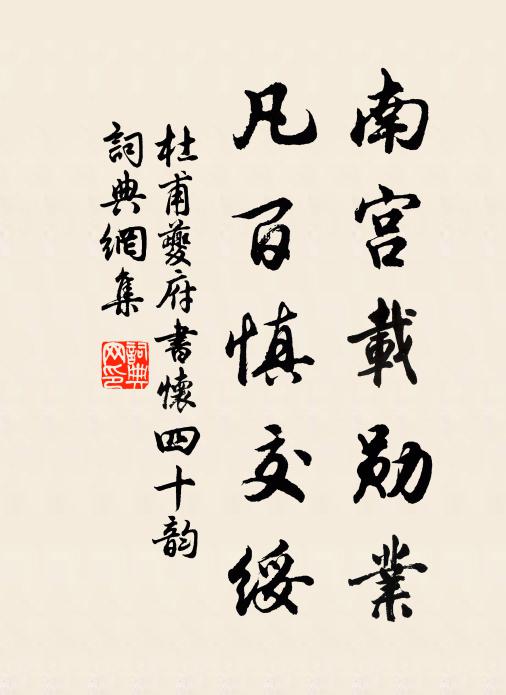 南宫載勋業
凡百慎交綏
杜甫夔府書懷四十韵
詞典網集
詞典网印